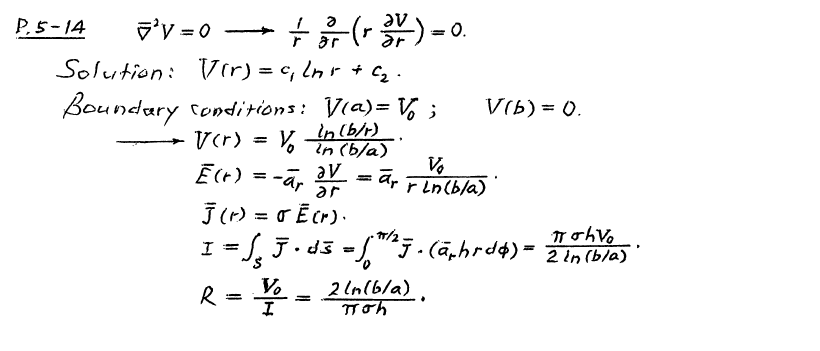 P.5-14 ∇̄²V = 0 ⟶ 1/r ∂/∂r (r ∂V/∂r) = 0.
Solution: V(r) = c₁ ln r + c₂.
Boundary conditions: V(a) = V₀; V(b) = 0.
⟶ V(r) = V₀ ln(b/r)/ln(b/a).
Ē(r) = -ā_r ∂V/∂r = ā_r V₀/(r ln(b/a)).
J̄(r) = σ Ē(r).
I = ∫_S J̄ · ds̄ = ∫₀^{π/2} J̄ · (ā_r h r dϕ) = πσhV₀/(2 ln(b/a)).
R = V₀/I = 2 ln(b/a)/(πσh).